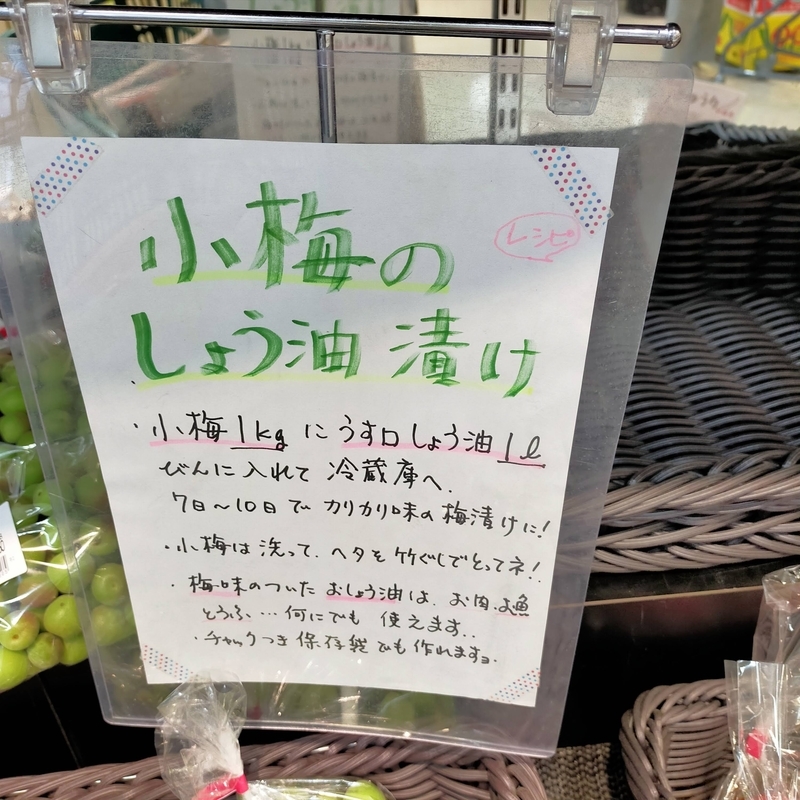 レシピ
小梅の
しょう油漬け
・小梅1kgにうす口しょう油1ℓ
びんに入れて冷蔵庫へ.
7日〜10日でカリカリ味の梅漬けに!
・小梅は洗って、ヘタを竹ぐしでとってネ!.
・梅味のついたおしょう油は、お肉、お魚
とうふ…何にでも使えます..
・チャックつき保存袋でも作れますョ.